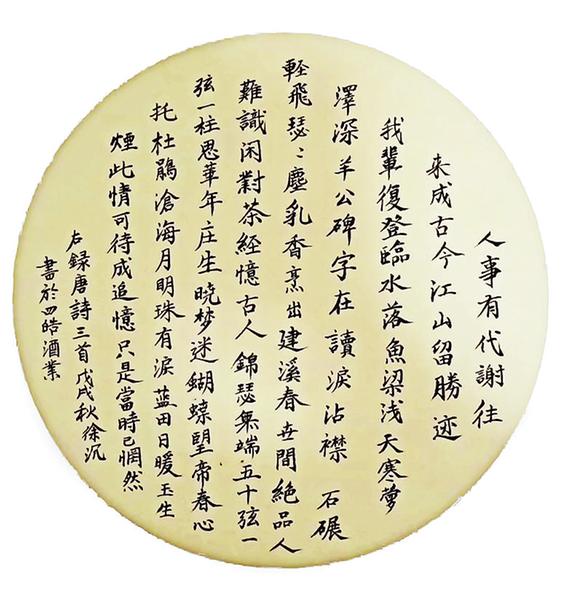 人事有代謝往
来成古今江山留勝迹
我輩復登臨水落魚梁浅天寒夢
澤深羊公碑字在讀淚沾襟 石碾
軽飛瑟〻塵乳香烹出建溪春世間絶品人
難識闲對茶經憶古人 錦瑟無端五十弦一
弦一柱思華年庄生晓梦迷蝴蝶望帝春心
托杜鵑滄海月明珠有淚蓝田日暖玉生
煙此情可待成追憶只是當時已惘然
右録唐詩三首戊戌秋徐沉
書於四皓酒業